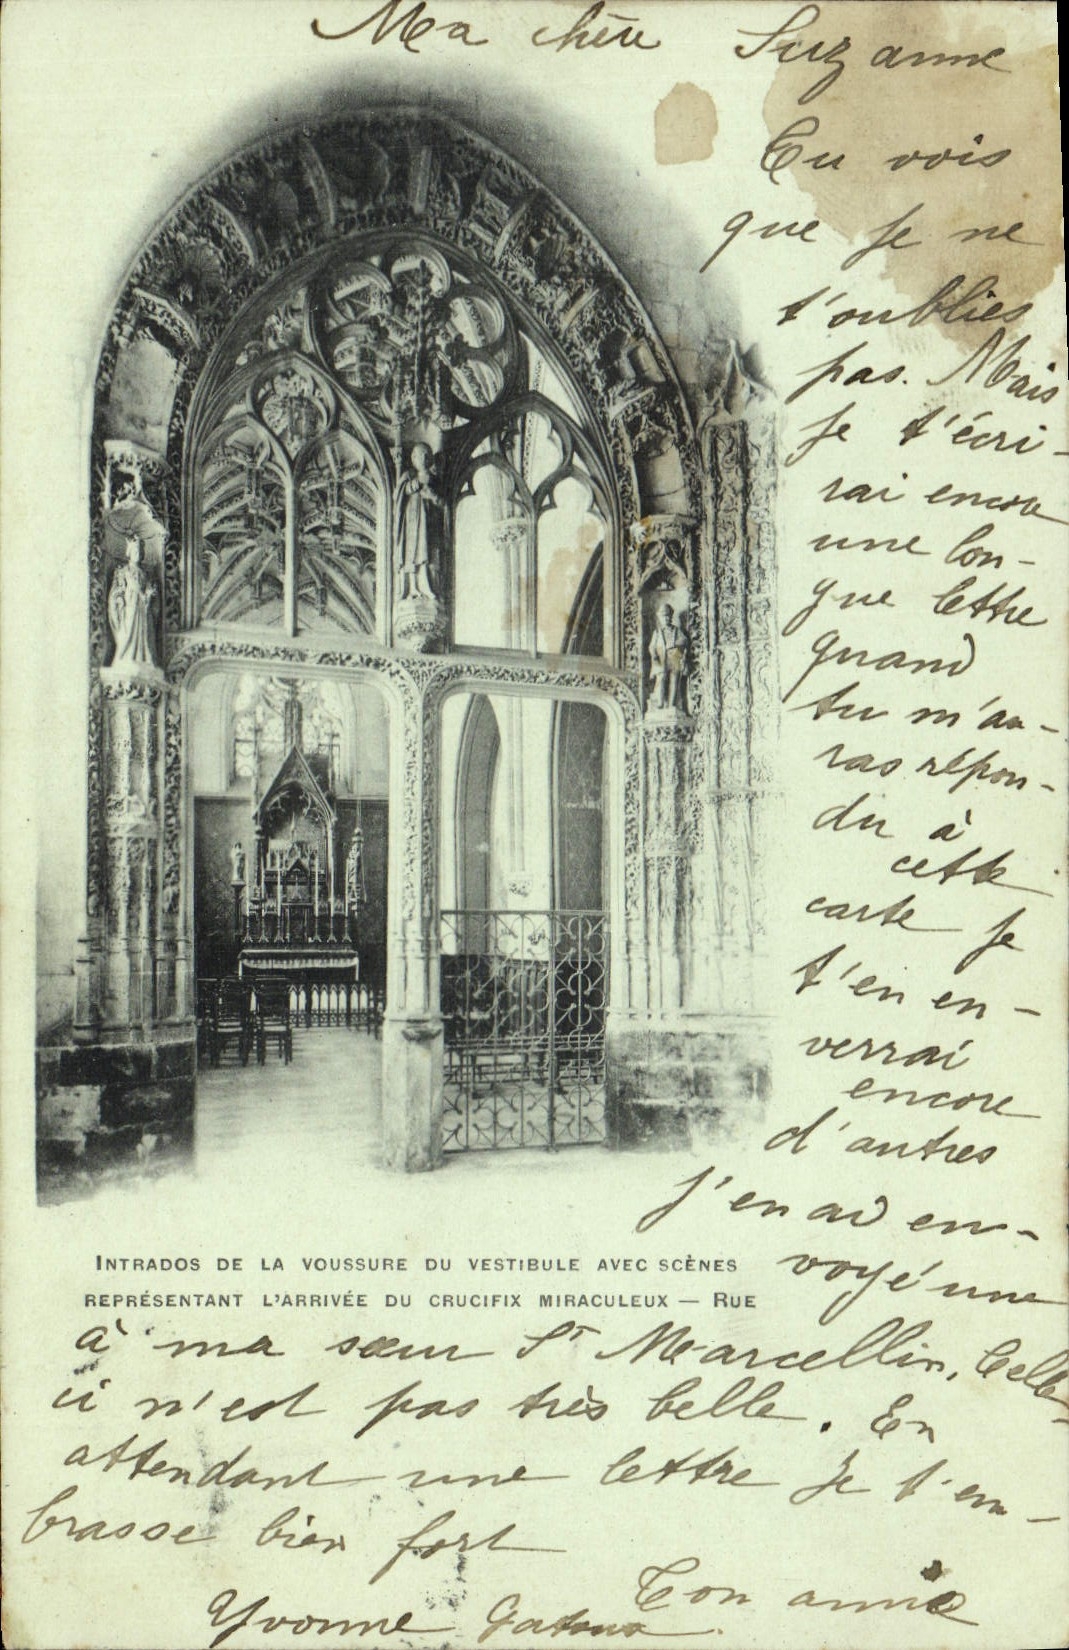 Ma chère Suzanne
Tu vois
que je ne
t'oublies
pas. Mais
je t'écri-
rai encore
une lon-
gue lettre
quand
tu m'au-
ras répon-
du à
cette
carte je
t'en en-
verrai
encore
d'autres
j'en ai en-
voyé une
INTRADOS DE LA VOUSSURE DU VESTIBULE AVEC SCÈNES
REPRÉSENTANT L'ARRIVÉE DU CRUCIFIX MIRACULEUX — RUE
à ma sœur St Marcellin, Celle-
ci n'est pas très belle. En
attendant une lettre je t'em-
brasse bien fort
Ton amie
Yvonne